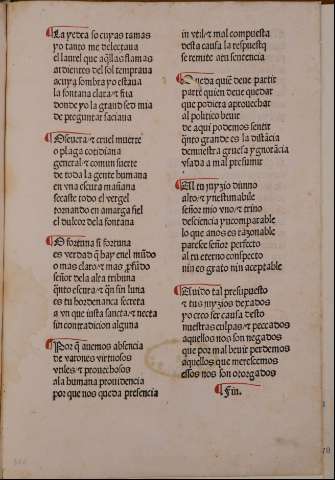 La yedra so cuyas ramas
yo tanto me delectaua
el laurel que aq̃llas flamas
ardientes del sol tempraua
a cuya sombra yo estaua
la fontana clara & fria
donde yo la grand sed mia
de preguntar saciaua
O seuera & cruel muerte
o plaga cotidiana
general & comun suerte
de toda la gente humana
en vna escura mañana
secaste todo el vergel
tornando en amarga fiel
el dulcor dela fontana
O fortuna si fortuna
es verdad q̃ hay enel mũdo
o mas claro & mas ꝓfũdo
señor dela alta tribuna
q̃nto escura & q̃n sin luna
es tu hordenança secreta
a vn que iusta sancta & necta
sin contradicion alguna
Por q̃ auemos absencia
de varones virtuosos
vtiles & prouechosos
ala humana prouidencia
por que nos queda presencia
in vtil & mal compuesta
desta causa la respuesta
se remite a tu sentencia
Queda quiẽ deue partir
parte quien deue quedar
que podiera aprouechar
al politico beuir
de aqui podemos sentir
q̃nto grande es la distãcia
demuestra gruesa ygnorãcia
vsada a mal presumir
Al tu juyzio diuino
alto & ynestimable
señor mio vno & trino
desciencia yncomparable
lo que anos es razonable
paresce señor perfecto
al tu eterno conspecto
nin es grato nin aceptable
Auido tal presupuesto
& tus juyzios dexados
yo creo ser causa desto
nuestras culpas & peccados
aquellos nos son negados
que por mal beuir perdemos
aquellos que merescemos
essos nos son otorgados
Fin.